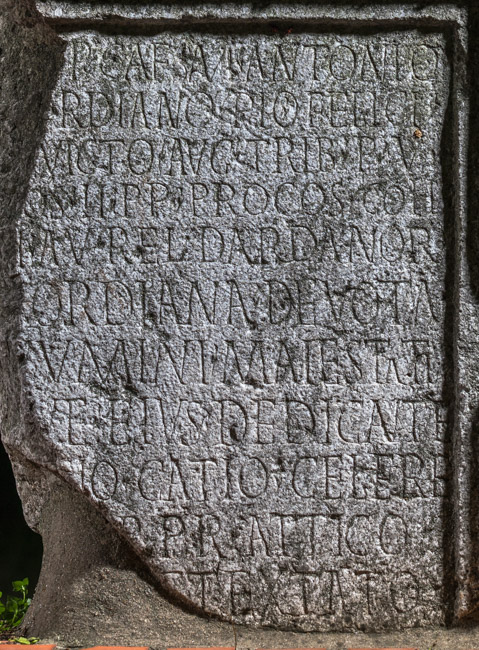 P CAES M ANTONIO
RDIANO PIO FELICI
VICTO AVG TRIB P V
S II PP PROCOS COH
AVREL DARDANOR
ORDIANA DEVOTA
NVMINI MAIESTATI
E EIVS DEDICATE
NO CATIO CELERE
P R ATTICO
ET EXTATO